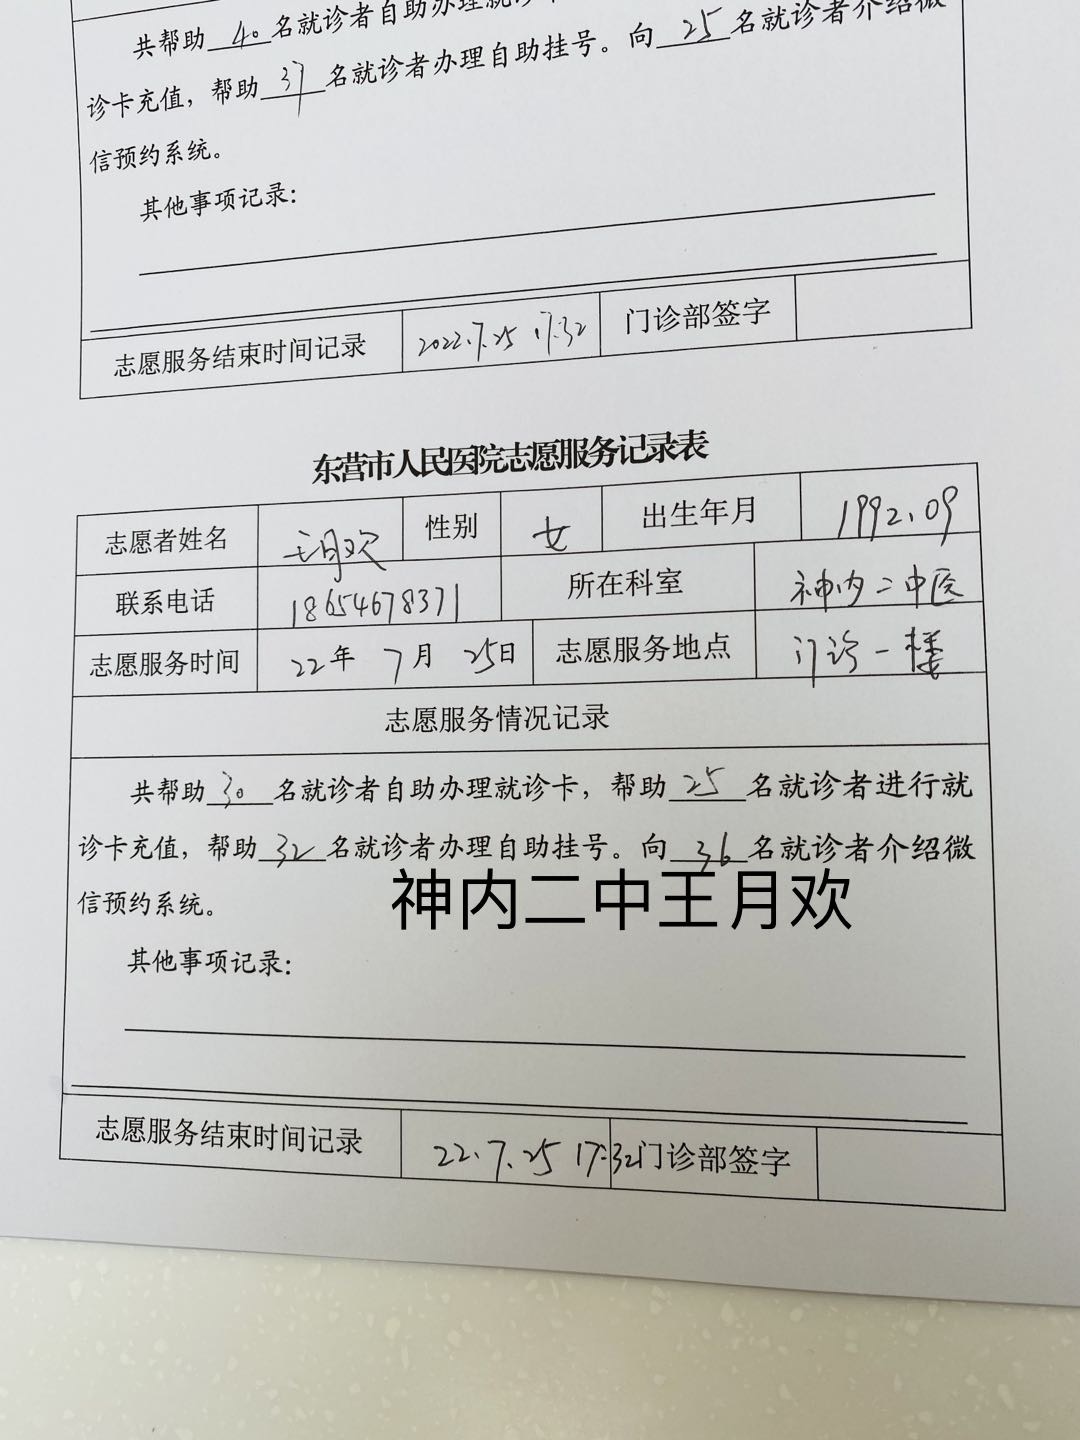 共帮助40名就诊者自助办理就诊卡
诊卡充值，帮助37名就诊者办理自助挂号。向25名就诊者介绍微
信预约系统。
其他事项记录：
志愿服务结束时间记录 2022.7.25 17:32 门诊部签字
东营市人民医院志愿服务记录表
志愿者姓名 王月欢 性别 女 出生年月 1992.09
联系电话 18654678371 所在科室 神内二中医
志愿服务时间 22年 7月 25日 志愿服务地点 门诊一楼
志愿服务情况记录
共帮助30名就诊者自助办理就诊卡，帮助25名就诊者进行就
诊卡充值，帮助32名就诊者办理自助挂号。向36名就诊者介绍微
信预约系统。
神内二中王月欢
其他事项记录：
志愿服务结束时间记录 22.7.25 17:32 门诊部签字